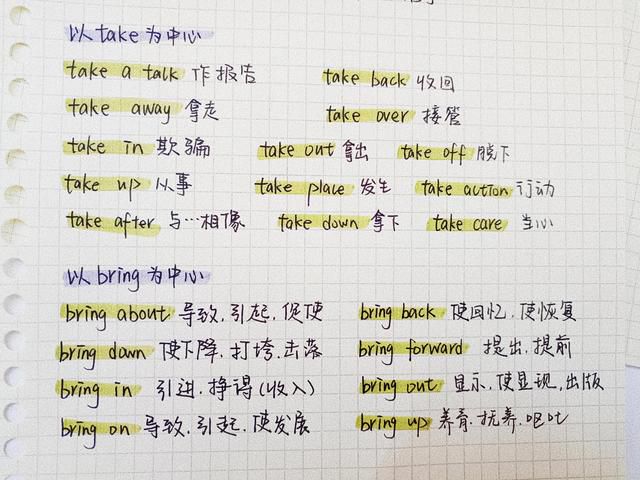 以take为中心
take a talk 作报告 take back 收回
take away 拿走 take over 接管
take in 欺骗 take out 拿出 take off 脱下
take up 从事 take place 发生 take action 行动
take after 与…相像 take down 拿下 take care 当心
以bring为中心
bring about 导致.引起.促使 bring back 使回忆.使恢复
bring down 使下降.打垮.击落 bring forward 提出.提前
bring in 引进.挣得(收入) bring out 显示.使显现.出版
bring on 导致.引起.使发展 bring up 养育.抚养.呕吐